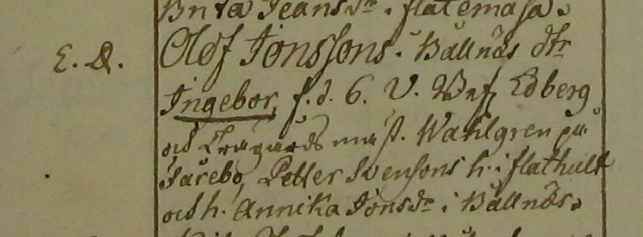 Brita Jeansdr. i flatemåsa.
E. D. Olof Jonssons i Bällnäs dtr
Ingebor, f. d. 6. V. Edberg
och Trägårds mäst. Wahlgren på
Sårebo, Petter Svensons h. i flathult
och h. Annika Jonsdr i Bällnäs.